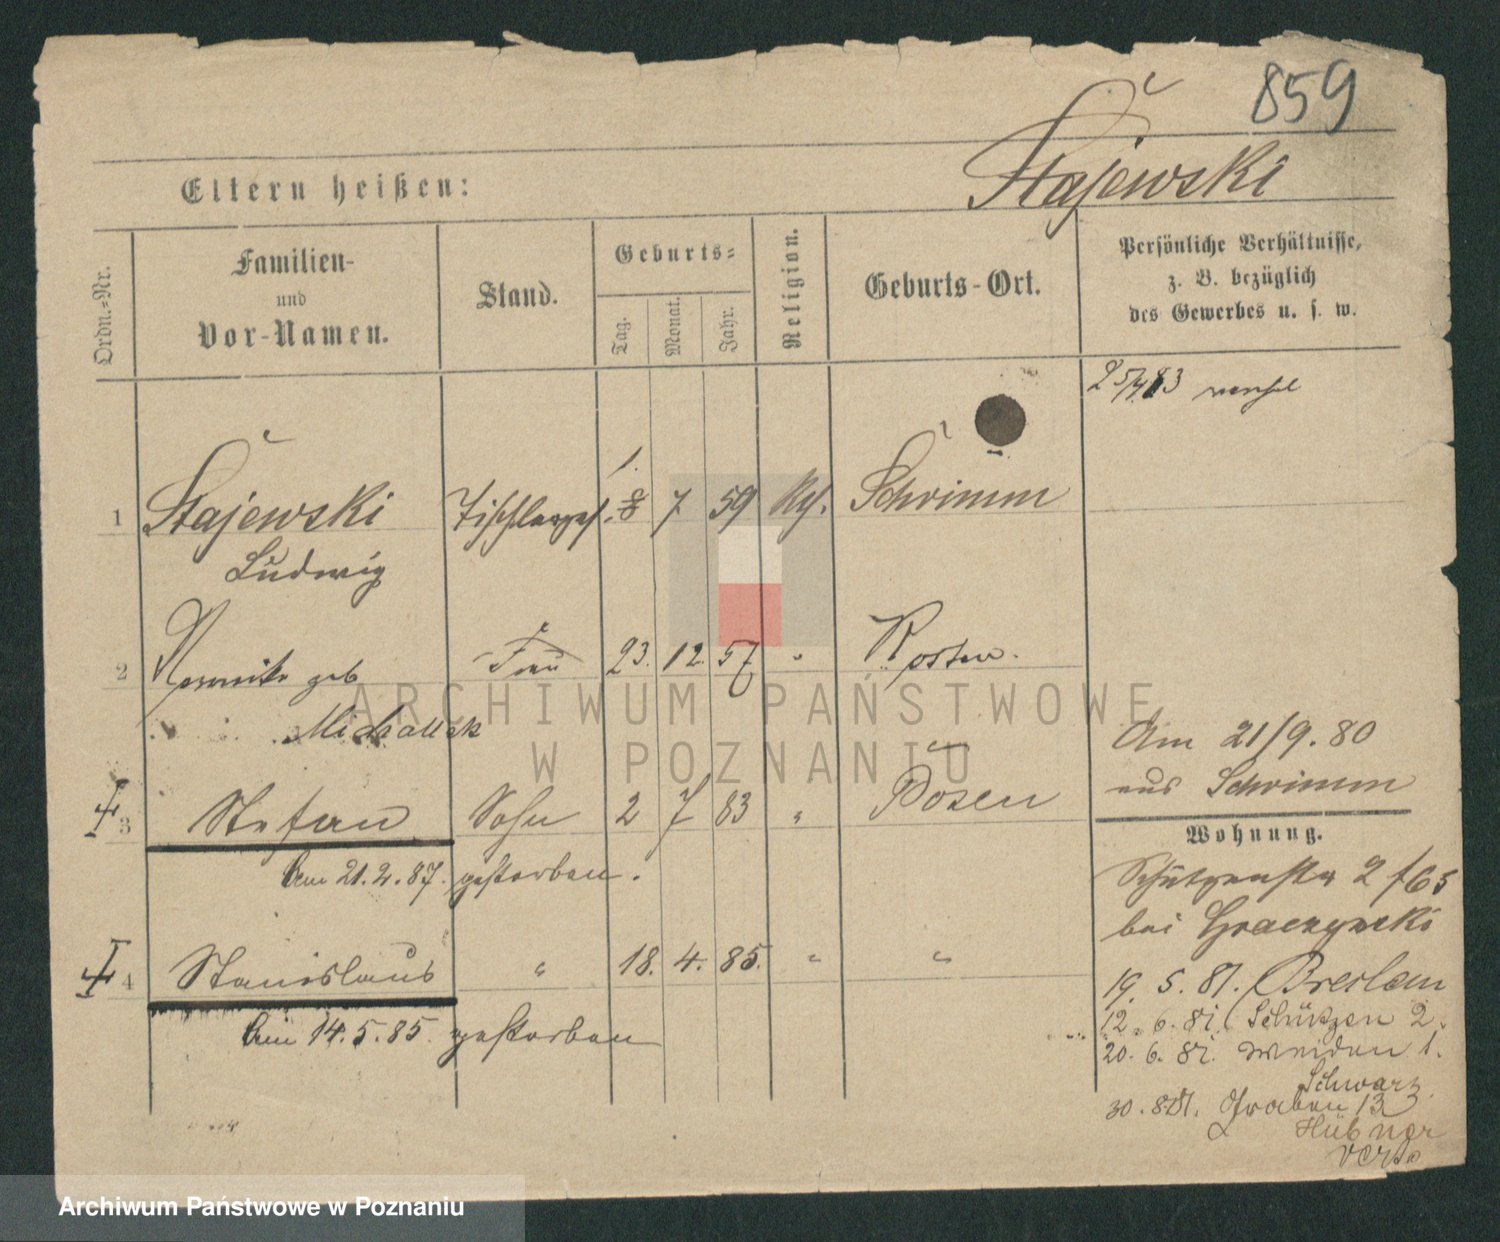 859
Stajewski
Eltern heißen:
Ordn.-Nr.
Familien-
und
Vor-Namen.
Stand.
Geburts-
Tag.
Monat.
Jahr.
Religion.
Geburts-Ort.
Persönliche Verhältnisse,
z. B. bezüglich
des Gewerbes u. s. w.
25/4 83
1 Stajewski Tischlerges. 8 7 59 Kth. Schrimm
Ludwig
2 geb Frau 23. 12. 57 " Kosten.
Michallak
Am 21/9. 80
aus Schrimm
3 Stefan Sohn 2 7 83 " Posen
Am 21.2.87. gestorben.
Wohnung.
Schützenstr 2 f 65
bei Graczynski
4 Stanislaus " 18. 4. 85. " "
Am 14.5.85. gestorben
19. 5. 81. Breslau
12. 6. 81. Schützen 2.
20. 6. 81. Weiden 1.
Schwarz
30. 8. 81. Graben 13
Hübner
verso
ARCHIWUM PAŃSTWOWE
W POZNANIU
Archiwum Państwowe w Poznaniu